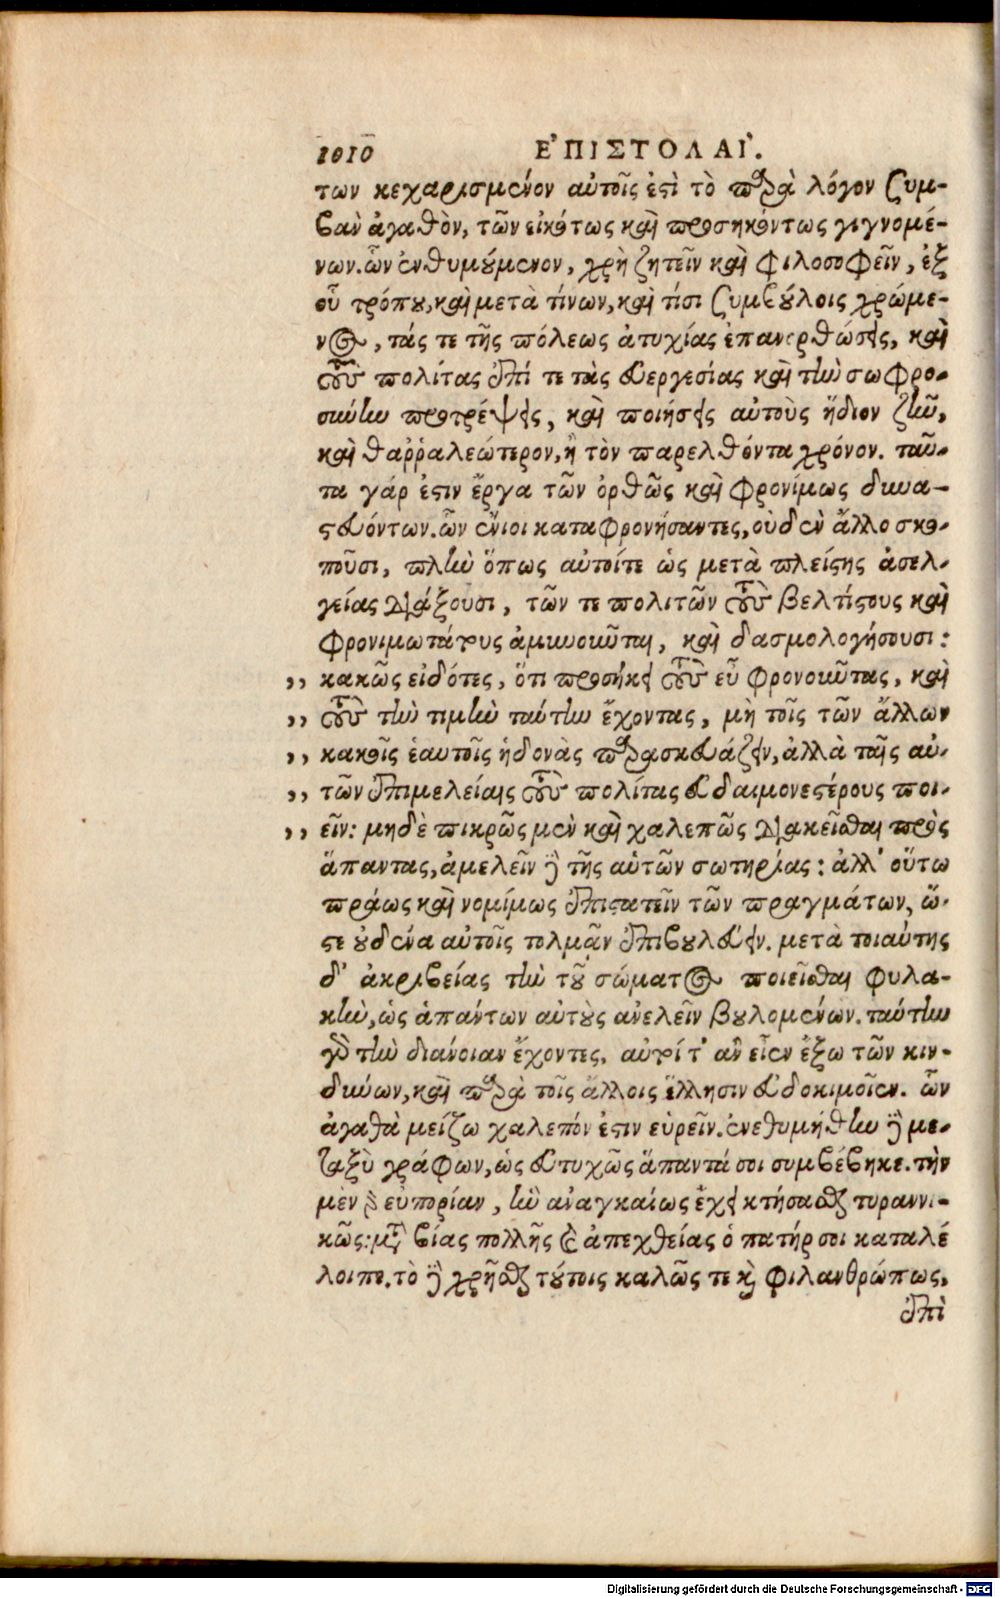 1010 ΕʼΠΙΣΤΟΛΑΙʹ.
των κεχαρισμένον αὐτοῖς ἐστὶ τὸ παρὰ λόγον συμ-
βὰν ἀγαθὸν, τῶν εἰκότως καὶ προσηκόντως γιγνομέ-
νων. ὧν ἐνθυμούμενον, χρὴ ζητεῖν καὶ φιλοσοφεῖν, ἐξ
οὗ τρόπου, καὶ μετὰ τίνων, καὶ τίσι συμβούλοις χρώμε-
νος, τάς τε τῆς πόλεως ἀτυχίας ἐπανορθώσεις, καὶ
τοὺς πολίτας ἐπί τε τὰς εὐεργεσίας καὶ τὴν σωφρο-
σύνην προτρέψεις, καὶ ποιήσεις αὐτοὺς ἥδιον ζῆν,
καὶ θαῤῥαλεώτερον, ἢ τὸν παρελθόντα χρόνον. ταῦ-
τα γάρ ἐστιν ἔργα τῶν ὀρθῶς καὶ φρονίμως δυνα-
στευόντων. ὧν ἔνιοι καταφρονήσαντες, οὐδὲν ἄλλο σκο-
ποῦσι, πλὴν ὅπως αὐτοίτε ὡς μετὰ πλείστης ἀσελ-
γείας διάξουσι, τῶν τε πολιτῶν τοὺς βελτίστους καὶ
φρονιμωτάτους ἀμυνοῦνται, καὶ δασμολογήσουσι:
,, κακῶς εἰδότες, ὅτι προσήκει τοὺς εὖ φρονοῦντας, καὶ
,, τοὺς τὴν τιμὴν ταύτην ἔχοντας, μὴ τοῖς τῶν ἄλλων
,, κακοῖς ἑαυτοῖς ἡδονὰς παρασκευάζειν, ἀλλὰ ταῖς αὐ-
,, τῶν ἐπιμελείαις τοὺς πολίτας εὐδαιμονεστέρους ποι-
,, εῖν: μηδὲ πικρῶς μὲν καὶ χαλεπῶς διακεῖσθαι πρὸς
ἅπαντας, ἀμελεῖν δὲ τῆς αὑτῶν σωτηρίας: ἀλλ' οὕτω
πράως καὶ νομίμως ἐπιστατεῖν τῶν πραγμάτων, ὥ-
στε οὐδένα αὐτοῖς τολμᾶν ἐπιβουλεύειν. μετὰ τοιαύτης
δ' ἀκριβείας τὴν τοῦ σώματος ποιεῖσθαι φυλα-
κὴν, ὡς ἁπάντων αὐτοὺς ἀνελεῖν βουλομένων. ταύτην
γὰρ τὴν διάνοιαν ἔχοντες, αὐτοί τ' ἂν εἶεν ἔξω τῶν κιν-
δύνων, καὶ παρὰ τοῖς ἄλλοις ἕλλησιν εὐδοκιμοῖεν. ὧν
ἀγαθὰ μείζω χαλεπόν ἐστιν εὑρεῖν. ἐνεθυμήθην δὲ με-
ταξὺ γράφων, ὡς εὐτυχῶς ἅπαντά σοι συμβέβηκε. τὴν
μὲν γὰρ εὐπορίαν, ἣν ἀναγκαίως ἔχει κτήσασθαι τυραννι-
κῶς: μετὰ βίας πολλῆς καὶ ἀπεχθείας ὁ πατήρ σοι καταλέ
λοιπε. τὸ δὲ χρῆσθαι τούτοις καλῶς τε καὶ φιλανθρώπως,
ἐπὶ
Digitalisierung gefördert durch die Deutsche Forschungsgemeinschaft - DFG